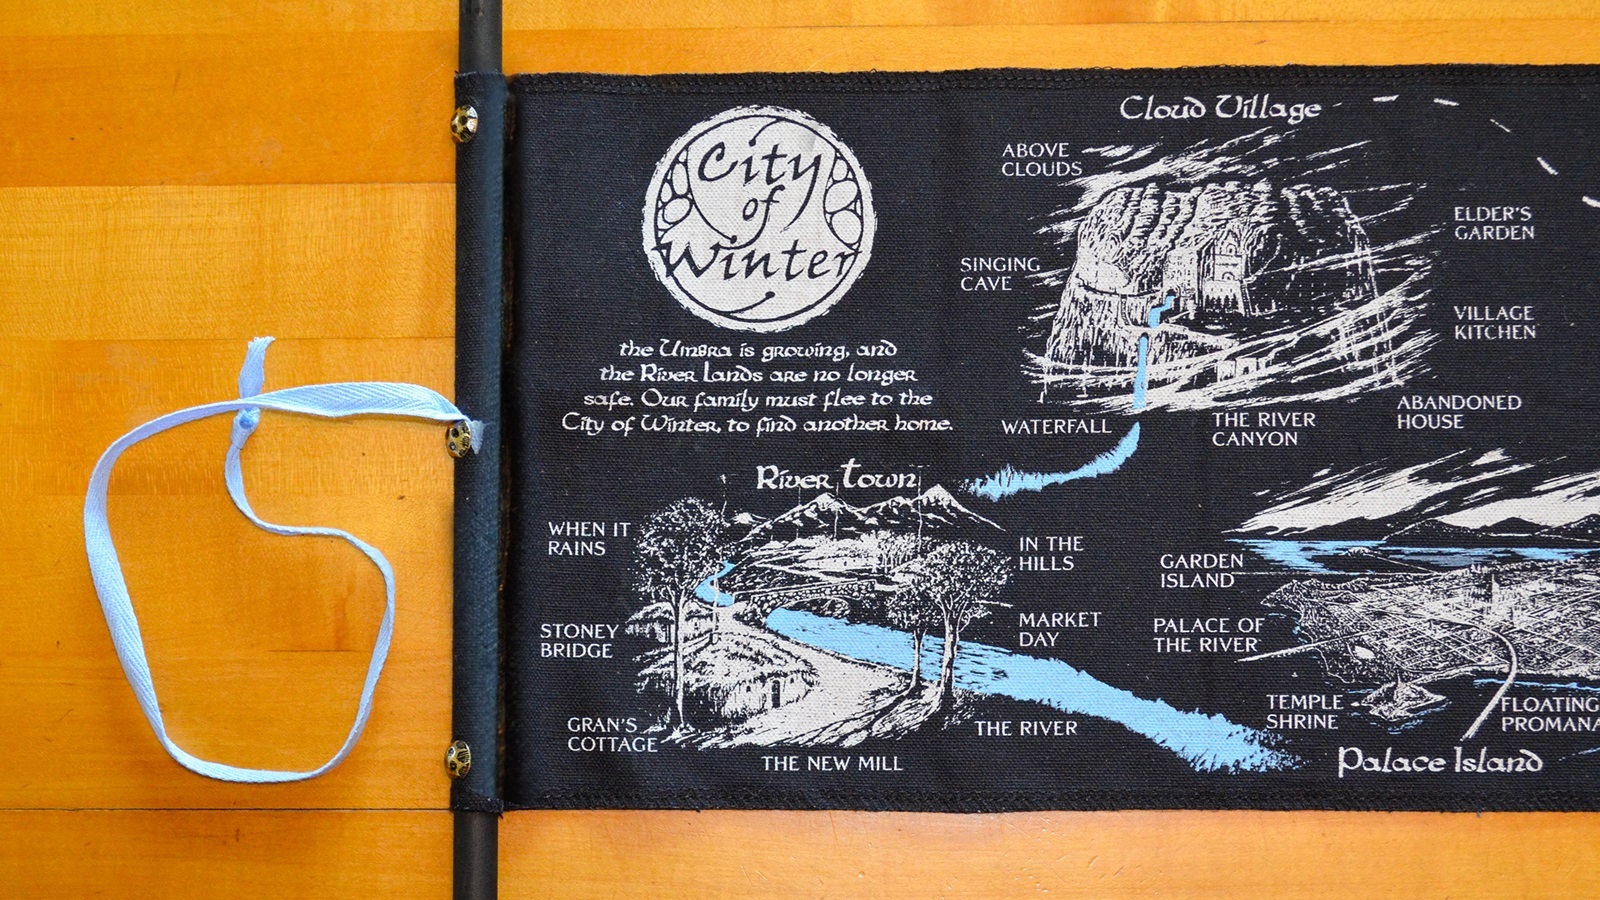 City
of
Winter
the Umbra is growing, and
the River Lands are no longer
safe. Our family must flee to the
City of Winter, to find another home.
Cloud Village
ABOVE
CLOUDS
ELDER'S
GARDEN
SINGING
CAVE
VILLAGE
KITCHEN
ABANDONED
HOUSE
WATERFALL
THE RIVER
CANYON
River Town
WHEN IT
RAINS
IN THE
HILLS
STONEY
BRIDGE
MARKET
DAY
GRAN'S
COTTAGE
THE RIVER
THE NEW MILL
GARDEN
ISLAND
PALACE OF
THE RIVER
TEMPLE
SHRINE
FLOATING
PROMANA
Palace Island